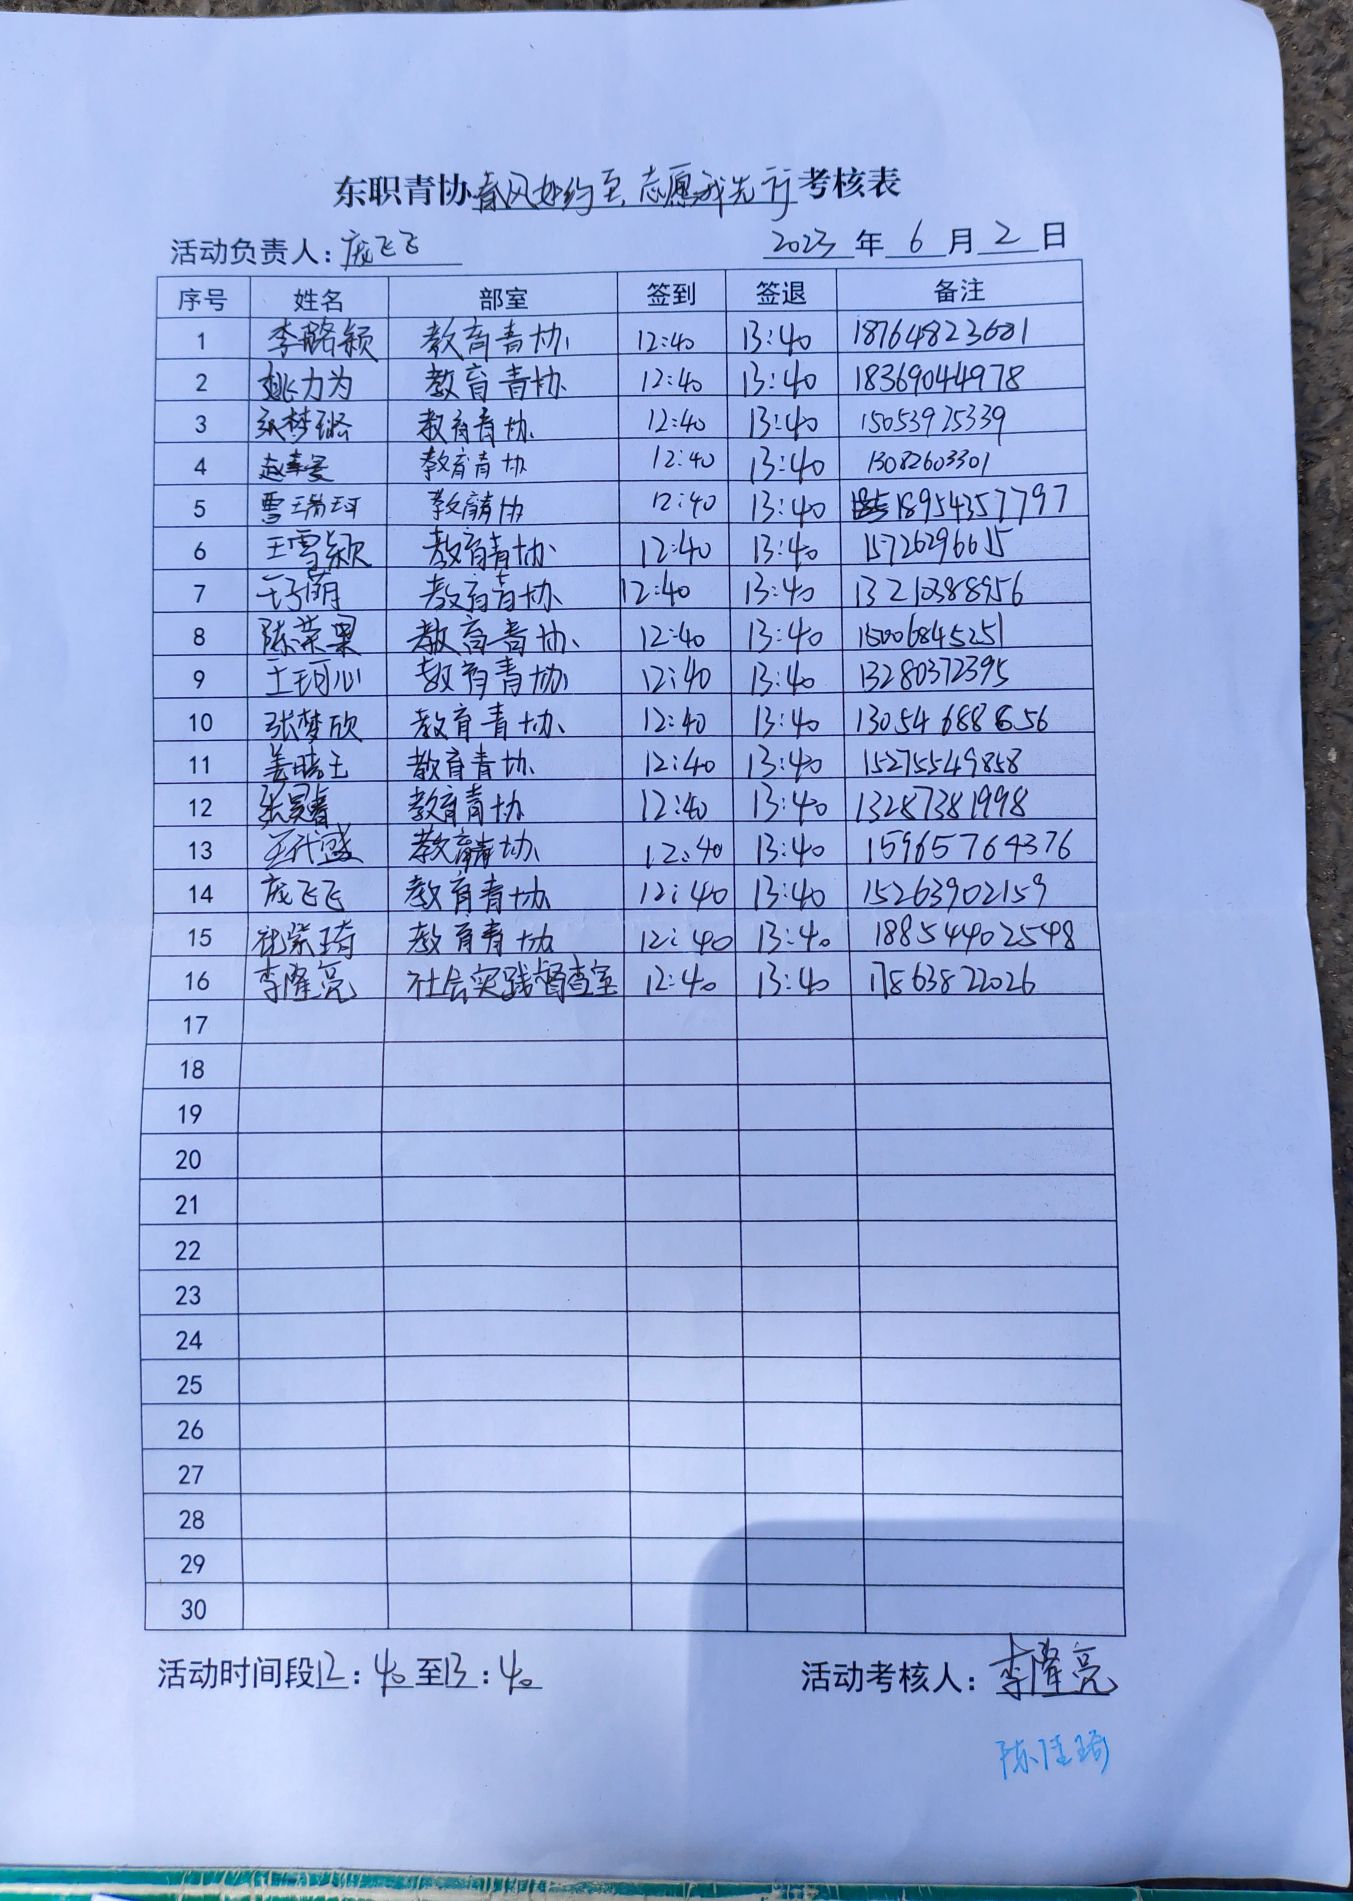 东职青协春风如约至 志愿我先行考核表
活动负责人：庞飞飞 2023年6月2日
序号 姓名 部室 签到 签退 备注
1 李璐颖 教育青协 12:40 13:40 18764823601
2 姚力为 教育青协 12:40 13:40 18369044978
3 张梦璐 教育青协 12:40 13:40 15053925339
4 教育青协 12:40 13:40 13082603301
5 曹瑞珂 教育青协 12:40 13:40 18954357797
6 王雪颖 教育青协 12:40 13:40 15726296615
7 教育青协 12:40 13:40 13210388956
8 陈荣果 教育青协 12:40 13:40 15006845251
9 王珂心 教育青协 12:40 13:40 13280372395
10 张梦欣 教育青协 12:40 13:40 13054688656
11 姜晓玉 教育青协 12:40 13:40 15275549858
12 教育青协 12:40 13:40 13287381998
13 教育青协 12:40 13:40 15965764376
14 庞飞飞 教育青协 12:40 13:40 15263902159
15 教育青协 12:40 13:40 18854402548
16 李隆亮 社会实践督查室 12:40 13:40 17863822026
17
18
19
20
21
22
23
24
25
26
27
28
29
30
活动时间段12:40至13:40 活动考核人：李隆亮
陈佳琦